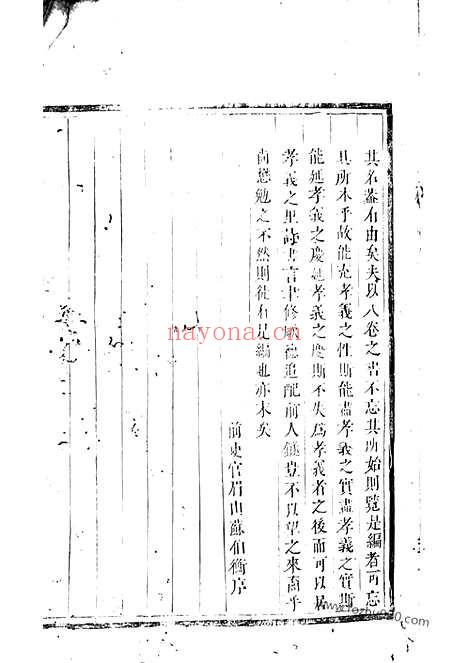 其名蓋有由矣夫以八卷之書不忘其所始則覽是編者可忘
其所本乎故能充孝義之性斯能盡孝義之實盡孝義之實斯
能延孝義之慶延孝義之慶斯不失為孝義者之後而可以居
孝義之里詩書言聿修厥德追配前人余豈不以望之來裔乎
尚懋勉之不然則徒有是編也亦末矣
前史官眉山蘇伯衡序
nayona.cn